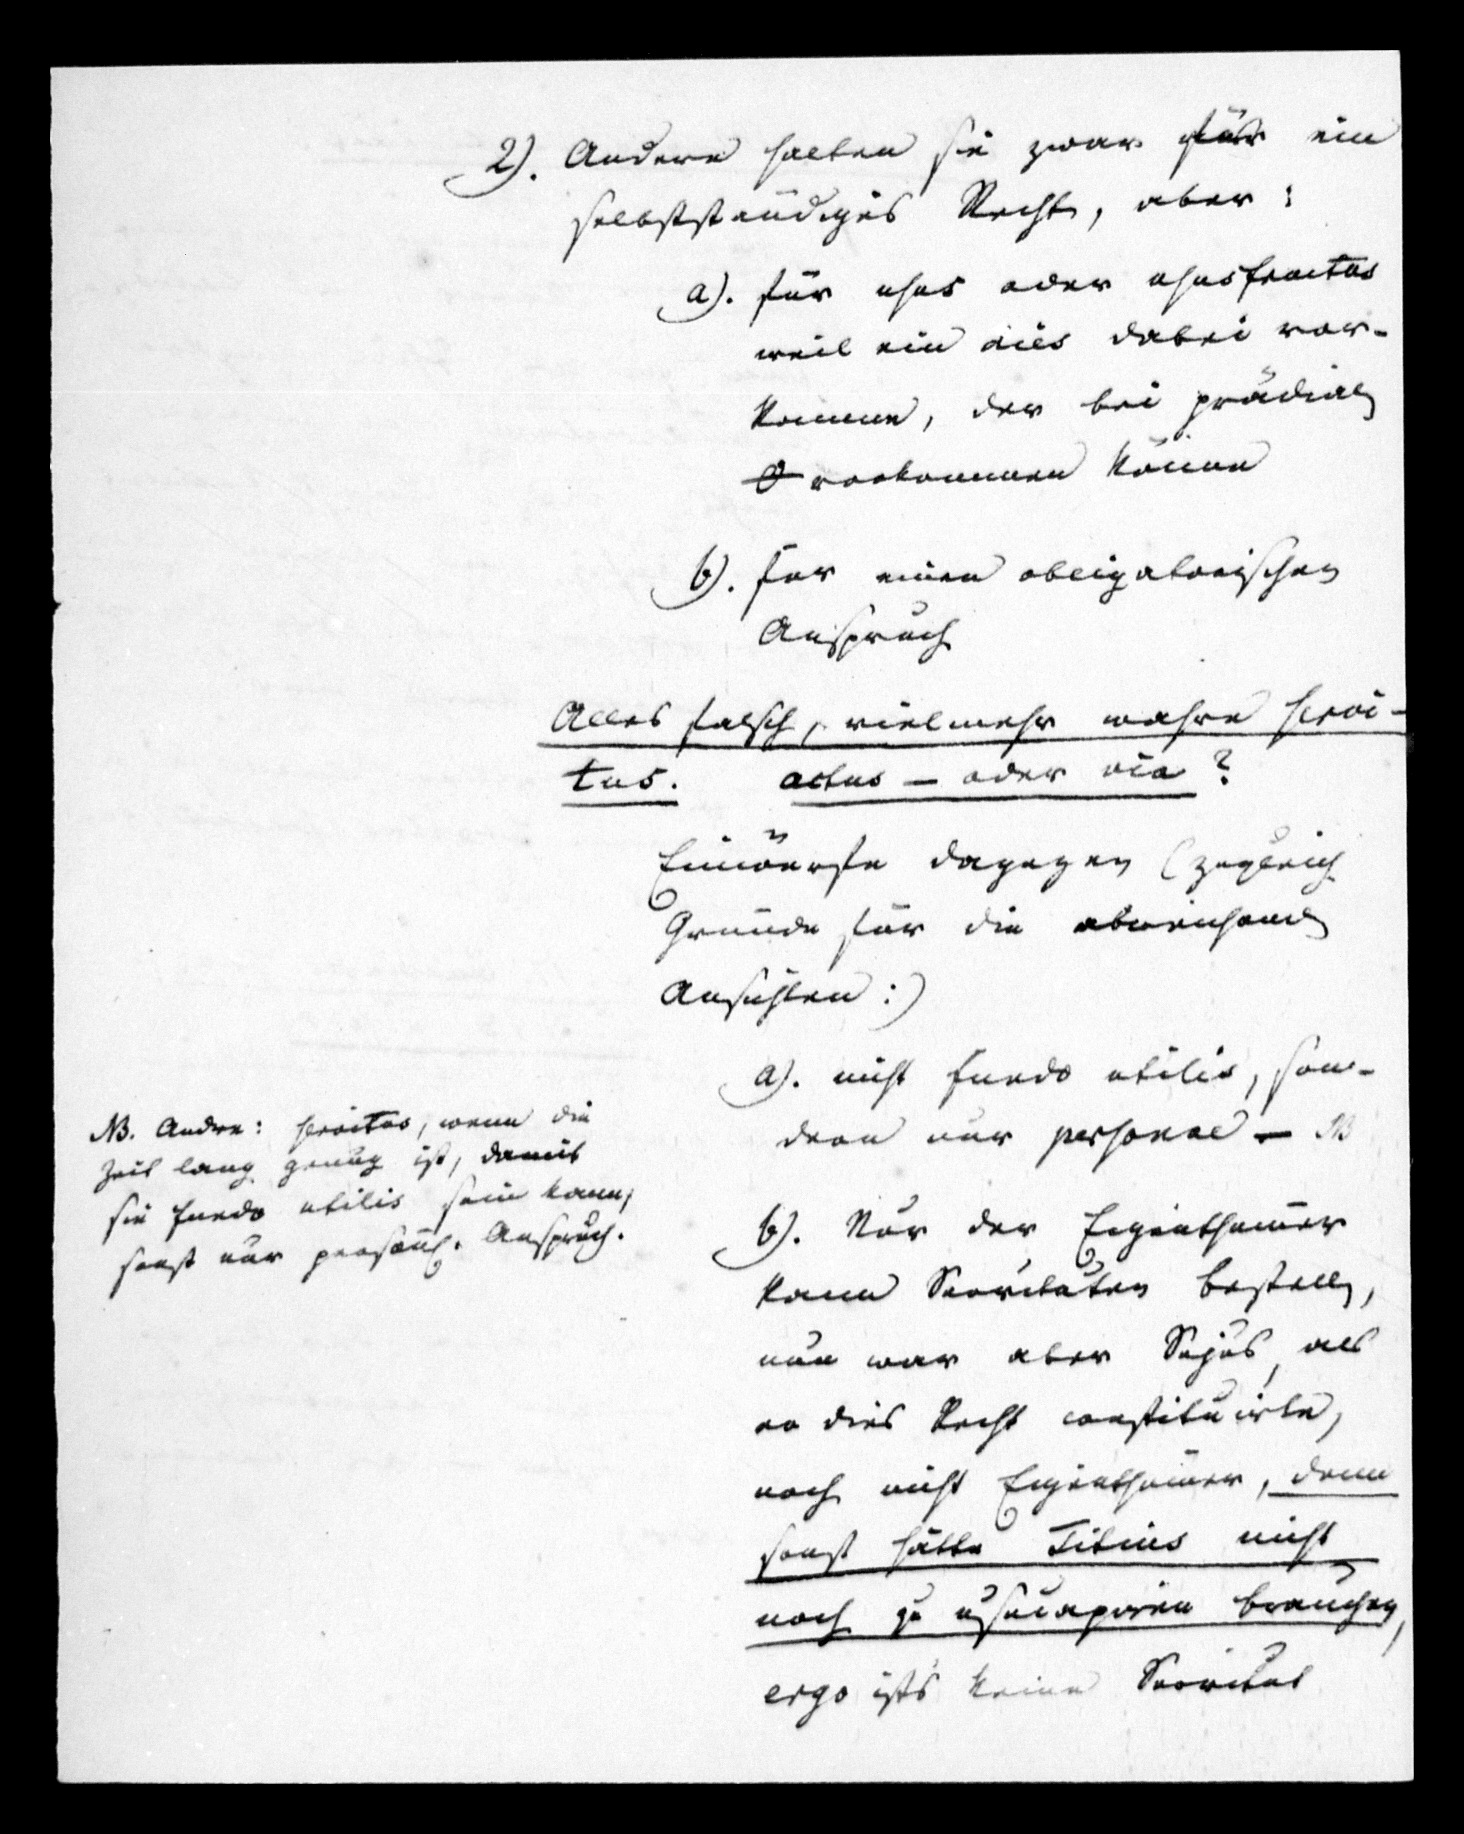 2). Andere halten sie zwar für ein
selbstständiges Recht, aber:
a). für usus oder ususfructus
weil ein dies dabei vor-
komme, der bei prädial
vorkommen könne
b). für einen obligatorischen
Anspruch
Alles falsch, vielmehr wahre servi-
tus. actus – oder via?
Einwürfe dagegen (zugleich
Gründe für die abweichend
Ansichten:)
a). nicht fundo utilis, son-
dern nur personae – NB
NB. Andre: servitus, wenn die
Zeit lang genug ist, damit
sie fundo utilis sein kann,
sonst nur persönl. Anspruch.
b). Nur der Eigenthümer
kann Servituten bestell,
nun war aber Sejus, als
er dies Recht constituirte,
noch nicht Eigenthümer, denn
sonst hätte Titius nicht
noch zu usucapiren brauchen,
ergo ists keine Servitut